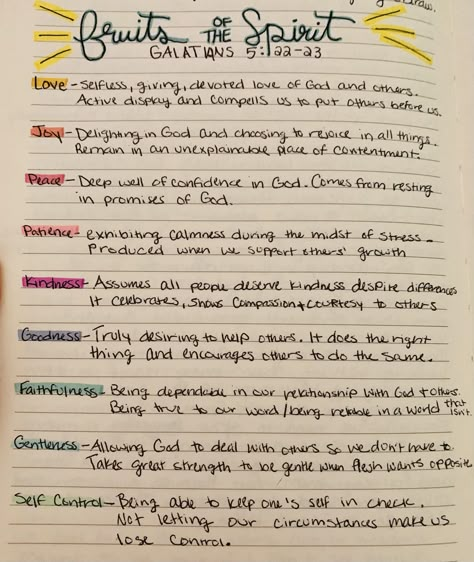 draw.
fruits OF THE Spirit
GALATIANS 5:22-23
Love - Selfless, giving, devoted love of God and others.
Active display and compells us to put others before us.
Joy - Delighting in God and choosing to rejoice in all things.
Remain in an unexplainable place of contentment.
Peace - Deep well of confidence in God. Comes from resting
in promises of God.
Patience - exhibiting calmness during the midst of stress.
Produced when we support others' growth
Kindness - Assumes all people deserve kindness despite differences
It celebrates, shows compassion + courtesy to others
Goodness - Truly desiring to help others. It does the right
thing and encourages others to do the same.
Faithfulness - Being dependable in our relationship with God + others.
Being true to our word / being reliable in a world that isn't.
Gentleness - Allowing God to deal with others so we don't have to.
Takes great strength to be gentle when flesh wants opposite
Self Control - Being able to keep one's self in check.
Not letting our circumstances make us
lose control.